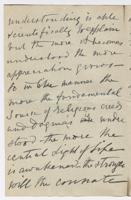 understanding is able
scientifically to explain
but the more it becomes
understood the more
appreciation grows
So in like manner the
more the fundamental
source of religious creed
and dogmas is under
stood the more the
central Light of Life
is awakened. the stronger
will the consonate